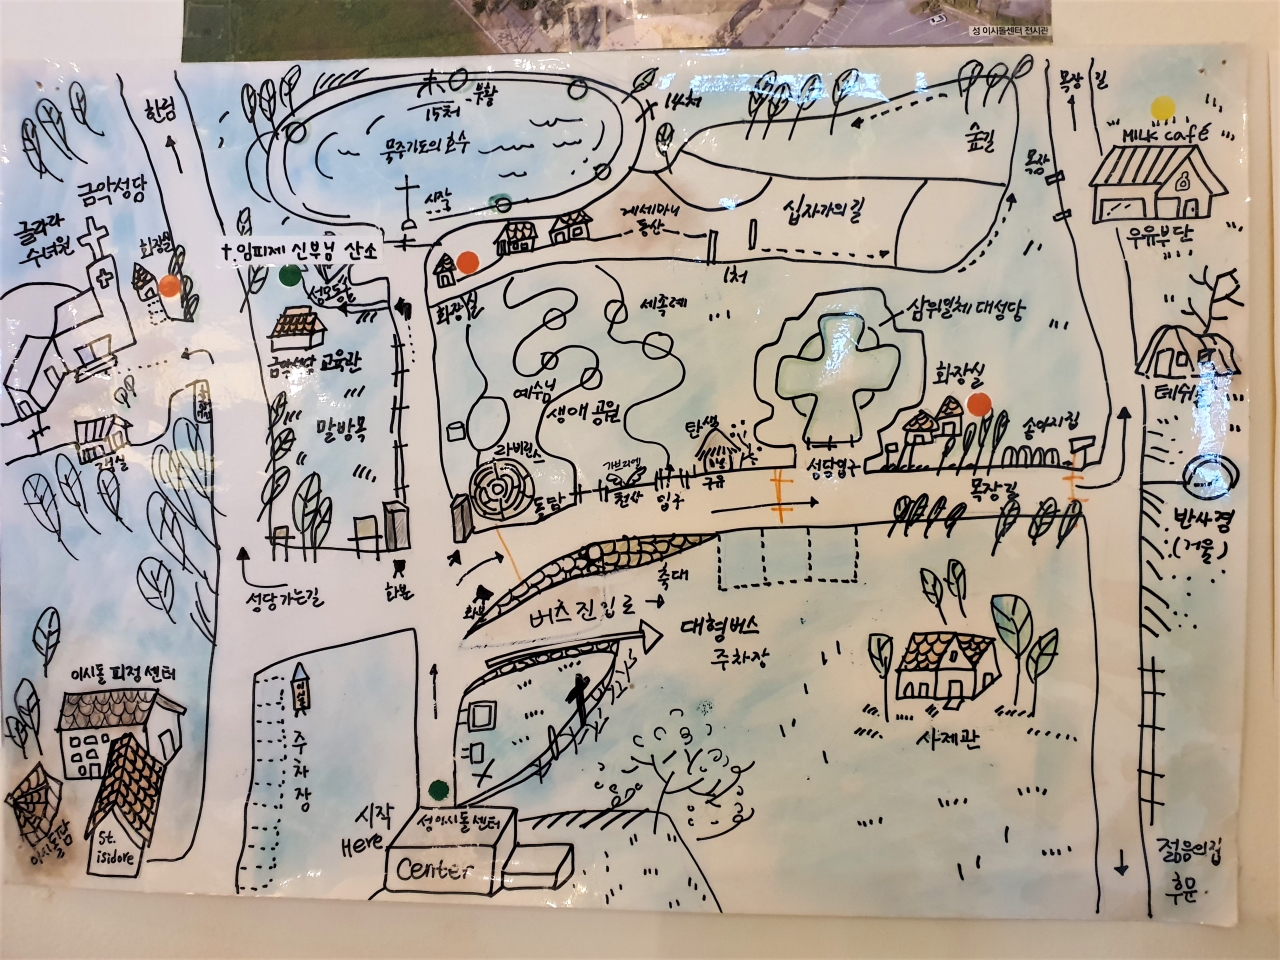 성 이시돌센터 전시관
한림
부활
15처
14처
묵주기도의 호수
시작
숲길
목장
목장 길
MILK café
우유부단
금악성당
글라라
수녀원
화장실
†.임피제 신부님 산소
성모동산
게세마니
동산
십자가의 길
1처
화장실
세족례
삼위일체 대성당
금악성당 교육관
예수님
생애 공원
화장실
테쉬폰
말방목
탄생
구유
라비린스
가브리엘
천사
입구
성당입구
송아지집
객실
돌탑
목장길
반사경
(거울)
축대
화본
성당가는길
버스 진입로 →
대형버스
주차장
이시돌 피정 센터
이시돌
주차장
사제관
시작
Here
성이시돌센터
Center
St.
isidore
젊음의집
후문